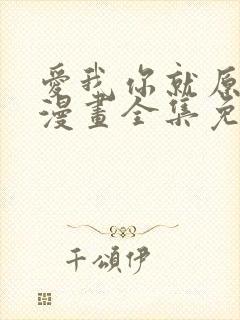 愛我你就原
漫畫全集免
千頌伊